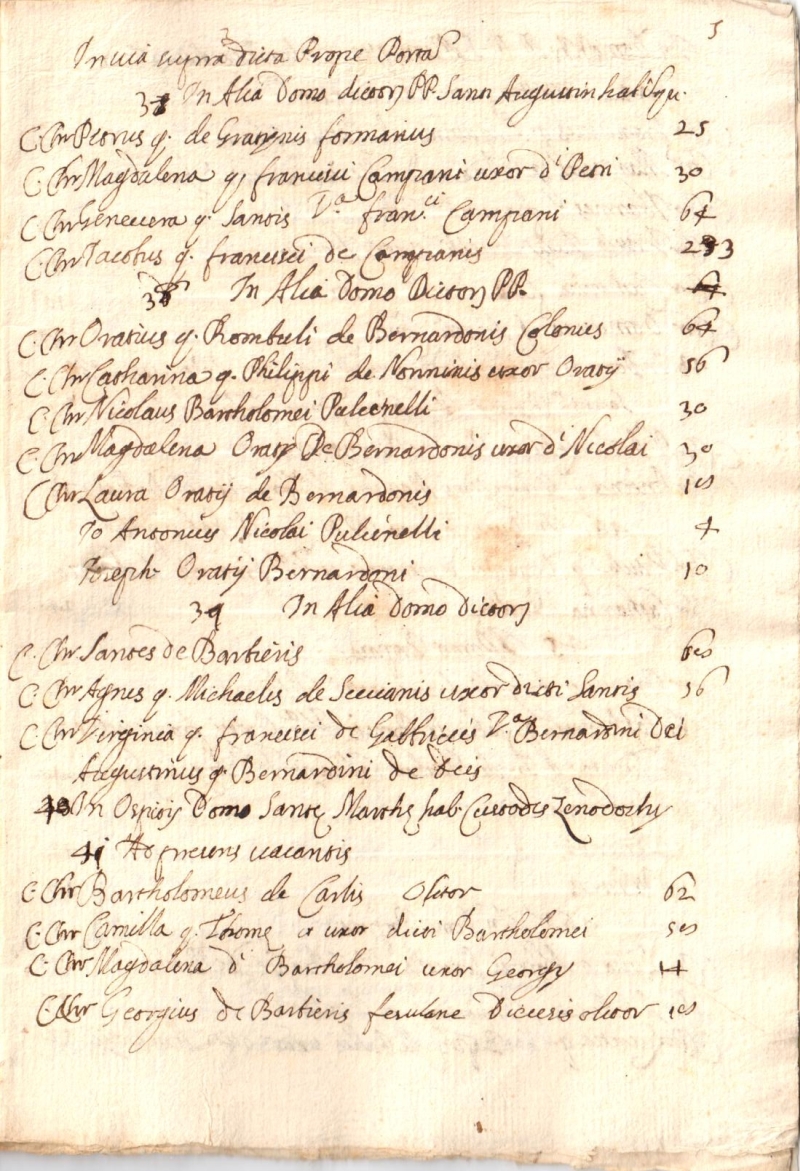 5
In via supra dicta Prope Porta
37 In Alia Domo dictorum PP. Santi Augustin hab.
C. Chr Petrus q. de Gratijnis fornarius 25
C. Chr Magdalena q. francisci Campani uxor d.i Petri 30
C. Chr Genevera q. Santis V.a fran.ci Campani 64
C. Chr Jacobus q. francisci de Campanis 23
38 In Alia Domo Dictorum PP.
C. Chr Oratius q. Rombuli de Bernardonis Colonus 64
C. Chr Catharina q. Philippi de Nonninis uxor Oratij 56
C. Chr Nicolaus Bartholomei Pulcinelli 30
C. Chr Magdalena Oratij De Bernardonis uxor d.i Nicolai 30
C. Chr Laura Oratij de Bernardonis
Jo Antonius Nicolai Pulcinelli 4
Joseph Oratij Bernardoni 10
39 In Alia Domo Dictorum
C. Chr Santes de Barbieris
C. Chr Agnes q. Michaelis de uxor dicti Santis 56
C. Chr Virginia q. francisci de V.a Bernardini Dei
Augustinus q. Bernardini de Deis
40 In Ospitij Domo Sante Marthe hab. Custodes Zenodochij
41 Ad presens vacantis
C. Chr Bartholomeus de Carlis Olitor 62
C. Chr Camilla q. Thome a uxor dicti Bartholomei
C. Chr Magdalena d.i Bartholomei uxor Georgij
C. Chr Georgius de Barbieris fesulane Diecesis olitor